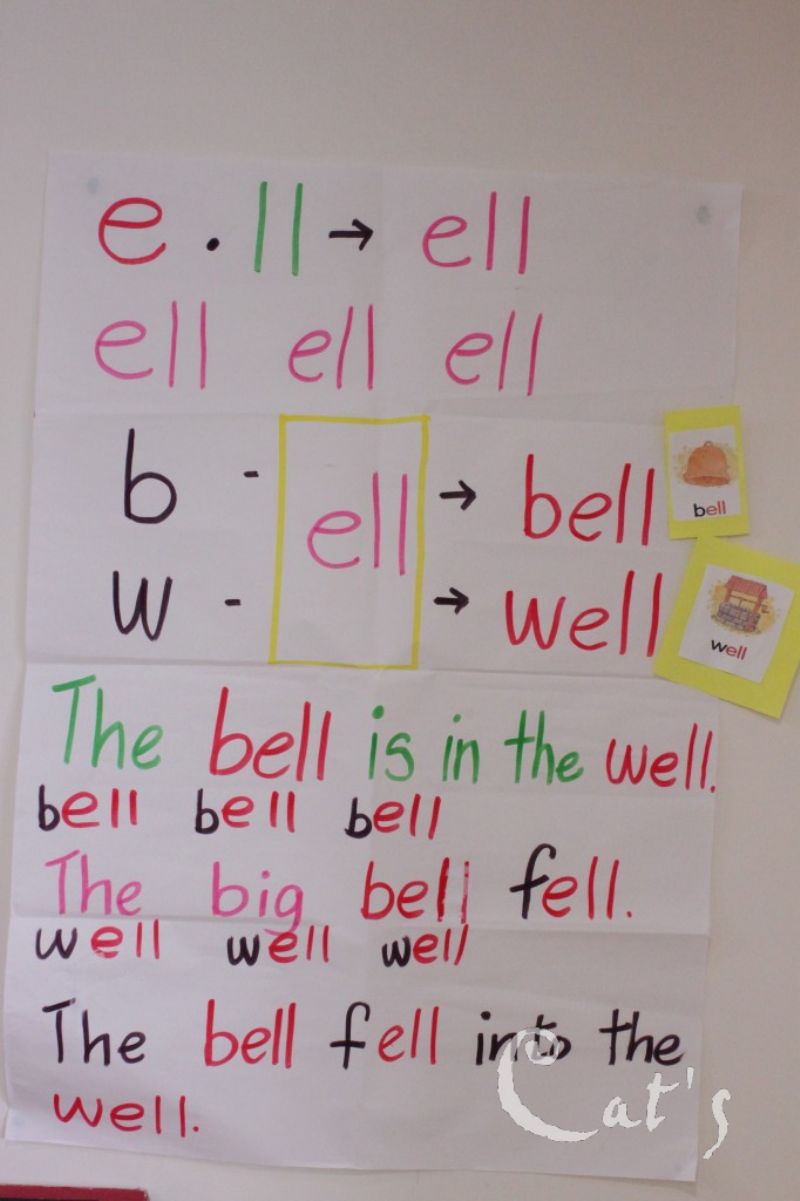 e . ll → ell
ell ell ell
b - ell → bell
bell
w - → well
well
The bell is in the well.
bell bell bell
The big bell fell.
well well well
The bell fell into the
well.
Cat's